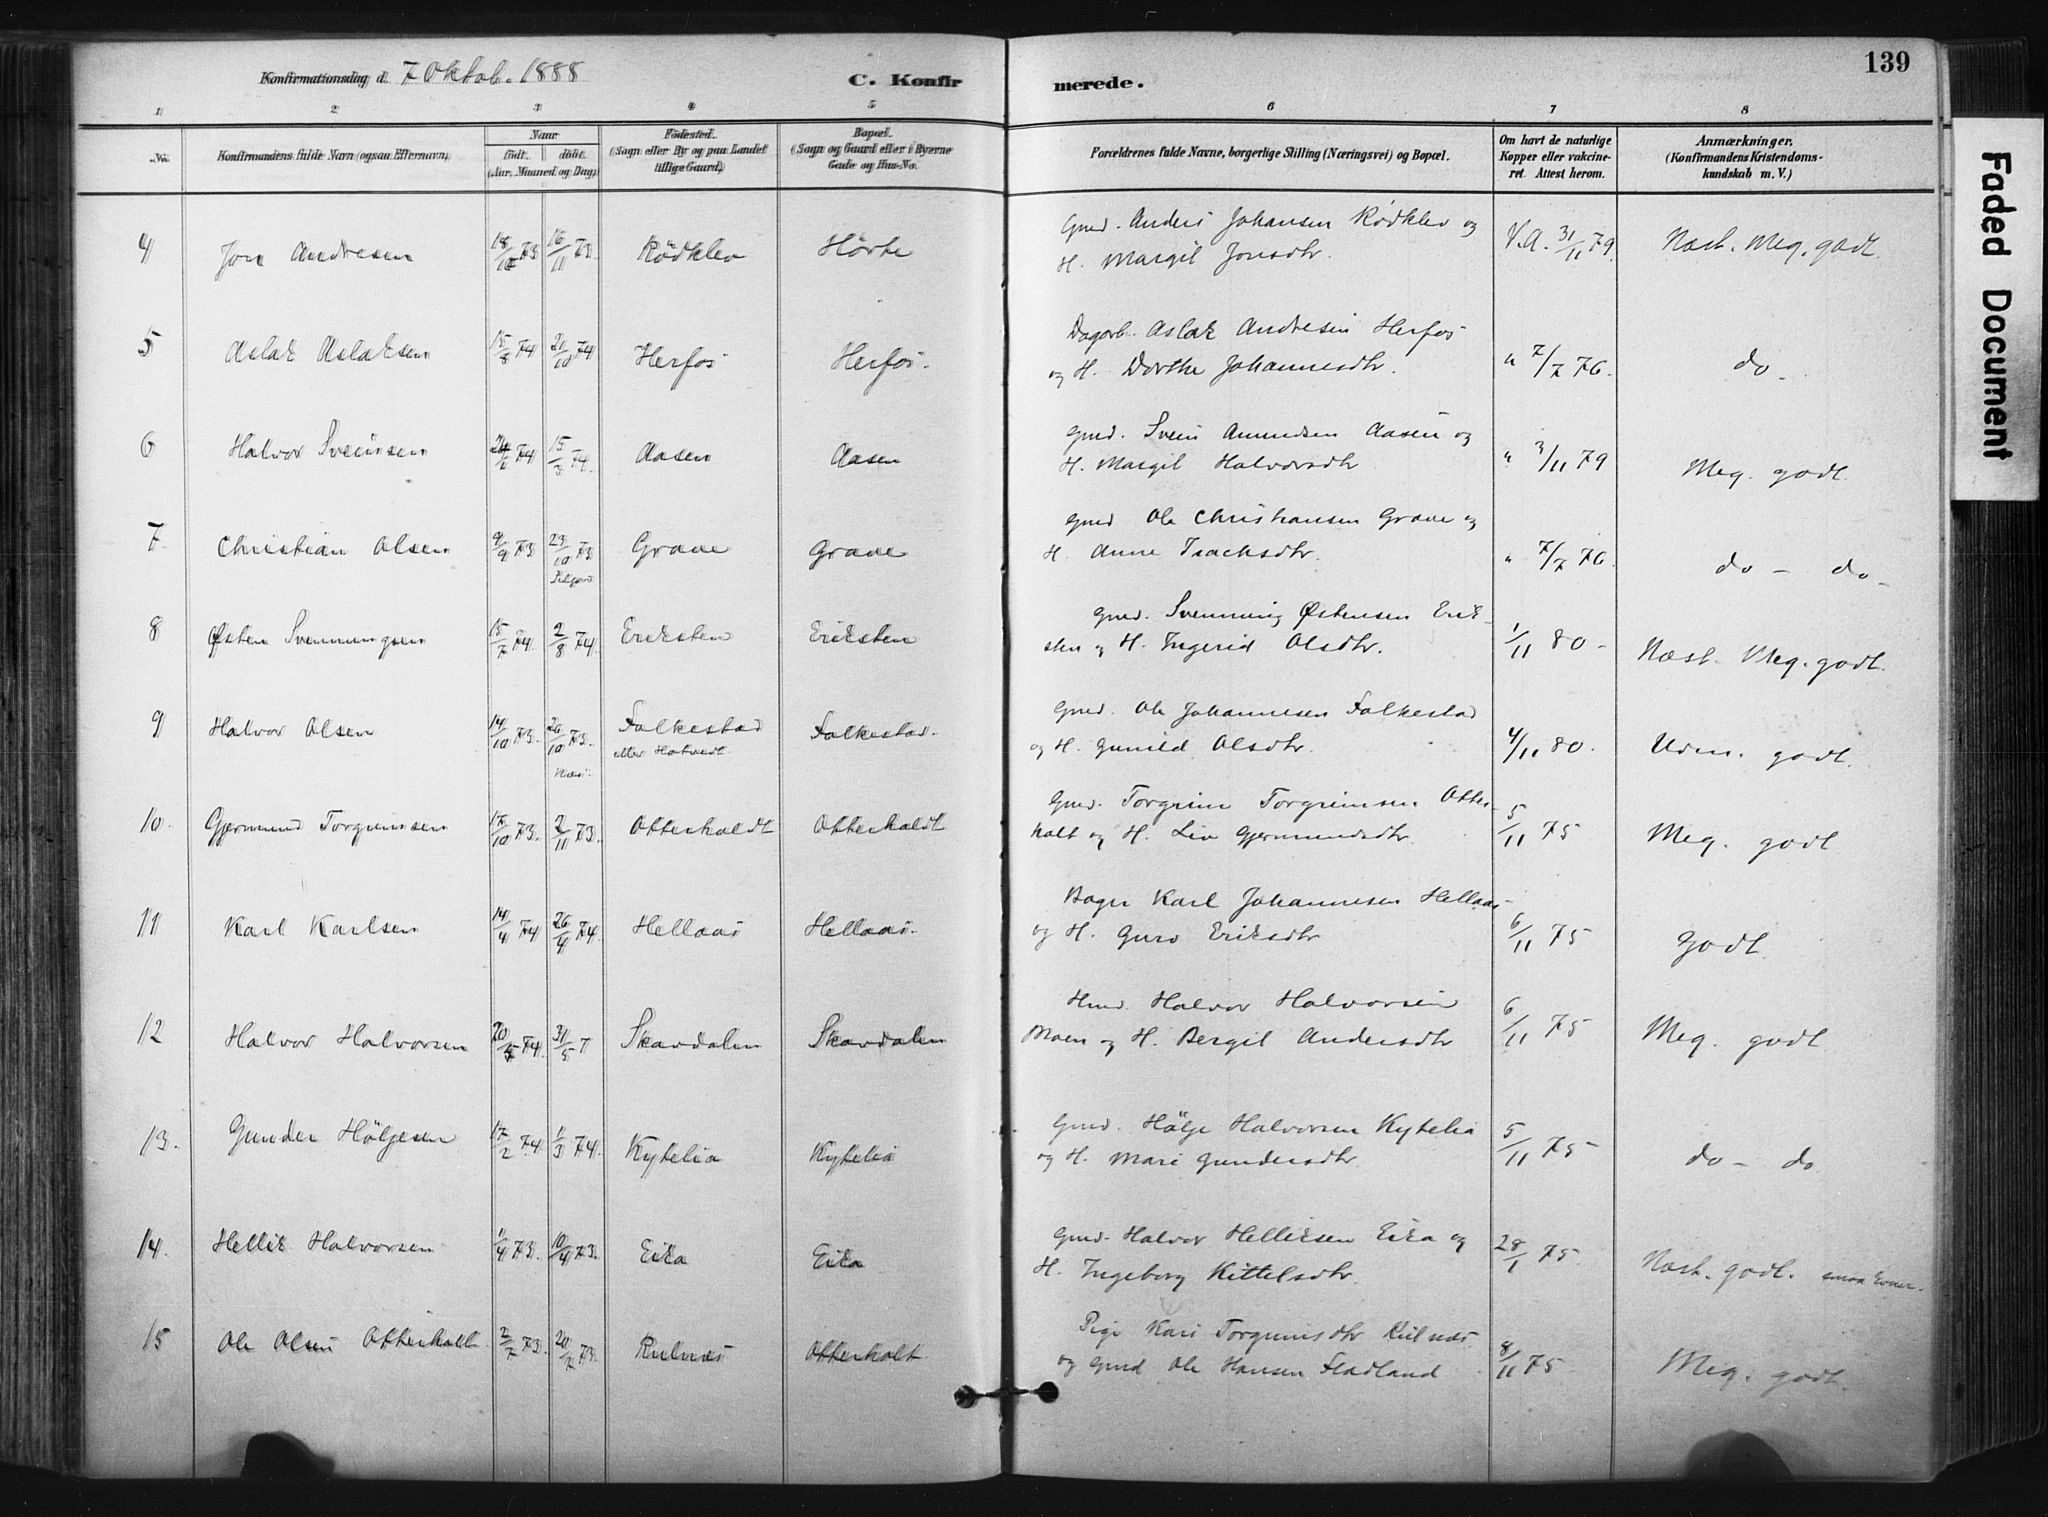 139
Konfirmationsdag d. 7 Oktob. 1888
C. Konfir merede.
1 2 3 4 5 6 7 8
No. Konfirmandens fulde Navn (ogsaa Efternavn) Naar Födested. Bopæl. Forældrenes fulde Navne, borgerlige Stilling (Næringsvei) og Bopæl. Om havt de naturlige Anmærkninger.
födt. döbt. (Sogn eller By og paa Landet (Sogn og Gaard eller i Byerne Kopper eller vakcine- (Konfirmandens Kristendoms-
(Aar, Maaned og Dag) tillige Gaard) Gade og Hus-No. ret. Attest herom. kundskab m. V.)
Gmd. Anders Johansen Rödklev og
4 Jon Andresen 18/10 73 16/11 73 Rödklev Hörte H. Margit Jonsdtr. V.A. 31/11 79 Næst. Meg. godt.
Dagarb. Aslak Andresen Herfos
5 Aslak Aslaksen 15/8 74 21/10 74 Herfos Herfos. og H. Dorthe Johannesdtr. " 7/7 76. do.
Gmd. Svein Amundsen Aasen og
6 Halvor Sveinsen 74 15/3 74. Aasen Aasen H. Margit Halvorsdtr " 3/11 79 Meg. godt.
Gmd Ole Christiansen Grave og
7. Christian Olsen 9/9 73 23/10 73 Grave Grave H. Anne Isachsdtr. " 7/7 76. do - do -
Gmd. Svenning Østensen Erik-
8 Østen Svenningsen 15/7 74 2/8 74. Eriksten Eriksten sten og H. Ingerid Olsdtr. 1/11 80 - Næst. Meg. godt.
Gmd. Ole Johannesen Falkestad
9 Halvor Olsen 14/10 73. 26/10 73. Falkestad Falkestad. og H. Gunild Olsdtr. 4/11 80. Udm. godt.
eller Hatvedt
Gmd. Torgrim Torgrimsen Otter-
10. Gjermund Torgrimsen 17/10 73. 2/11 73. Otterholdt Otterholdt holt og H. Liv Gjermundsdtr. 5/11 75 Meg. godt
Bager Karl Johannesen Hellaas
11 Karl Karlsen 14/4 74 26/4 74. Hellaas Hellaas. og H. Guro Eriksdtr 6/11 75 Godt.
Hmd. Halvor Halvorsen
12 Halvor Halvorsen 74. 31/5 7 Skardalen Skardalen Moen og H. Bergit Andersdtr 6/11 75 Meg. godt
Gmd. Hölje Halvorsen Kytelia
13. Gunder Höljesen 17/2 74. 1/3 74. Kytelia Kytelia og H. Mari Gundersdtr. 5/11 75 do - do
Gmd. Halvor Helliksen Eika og
14. Hellik Halvorsen 1/4 73. 10/4 73. Eika Eika H. Ingeborg Kittelsdtr. 28/1 75. Næst. godt. smaa Evner.
Pige Kari Torgrimsdtr Rulnæs
15 Ole Olsen Otterholt 2/7 73. 20/7 73. Rulnæs Otterholt og Gmd Ole Hansen Fladland 8/11 75. Meg. godt.
Faded Document